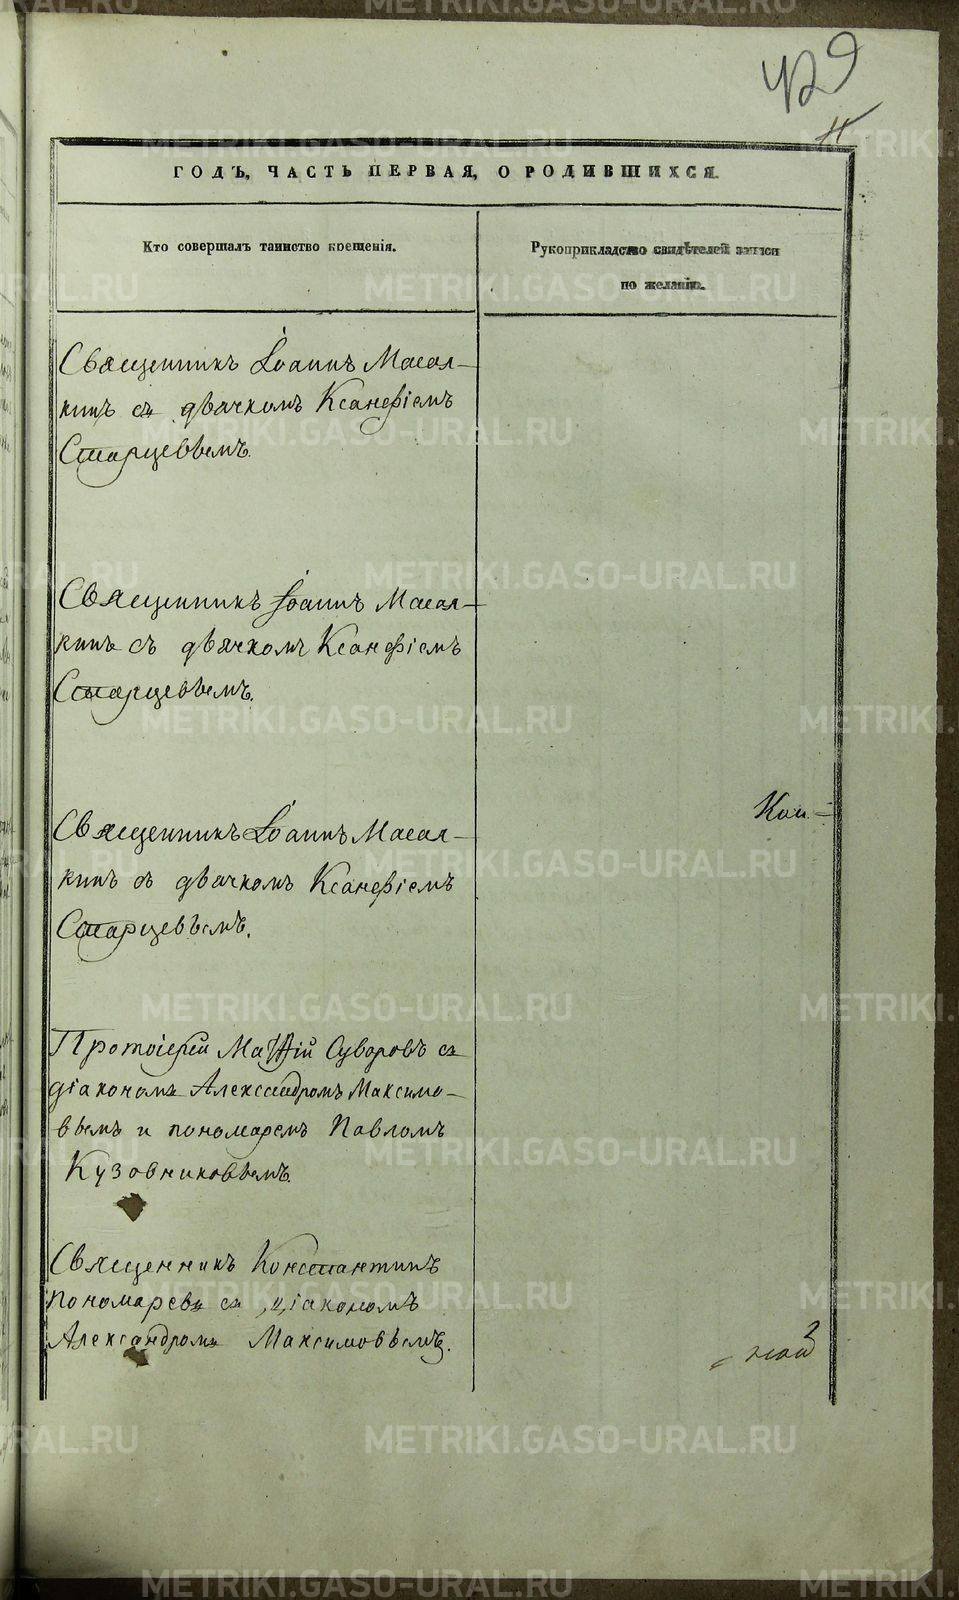 429
11
ГОДЪ, ЧАСТЬ ПЕРВАЯ, О РОДИВШИХСЯ.
Кто совершалъ таинство крещенія.
Рукоприкладство свидѣтелей записи
по желанію.
Священникъ Іоаннъ Масал-
кинъ съ дьячкомъ Ксанѳіемъ
Старцевымъ.
Священникъ Іоаннъ Масал-
кинъ съ дьячкомъ Ксанѳіемъ
Старцевымъ.
Кон-
Священникъ Іоаннъ Масал-
кинъ съ дьячкомъ Ксанѳіемъ
Старцевымъ.
Протоіерей Матѳій Суворовъ съ
діакономъ Александромъ Максимо-
вымъ и пономаремъ Павломъ
Кузовниковымъ.
Священникъ Константинъ
Пономаревъ съ діакономъ
Александромъ Максимовымъ.
METRIKI.GASO-URAL.RU